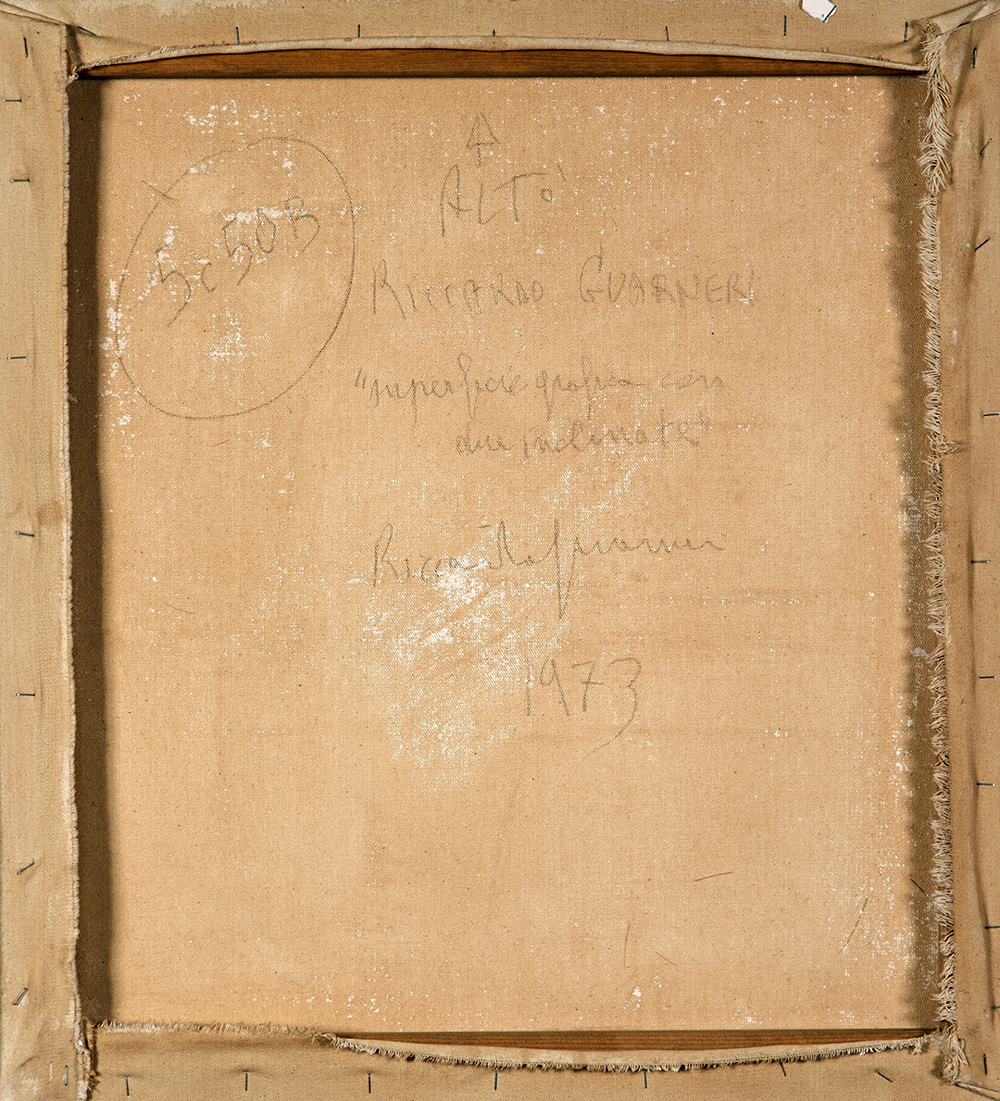 ALTO
5C 50B
RICCARDO GUARNERI
"superficie grafica con
due inclinate"
Riccardo Guarneri
1973